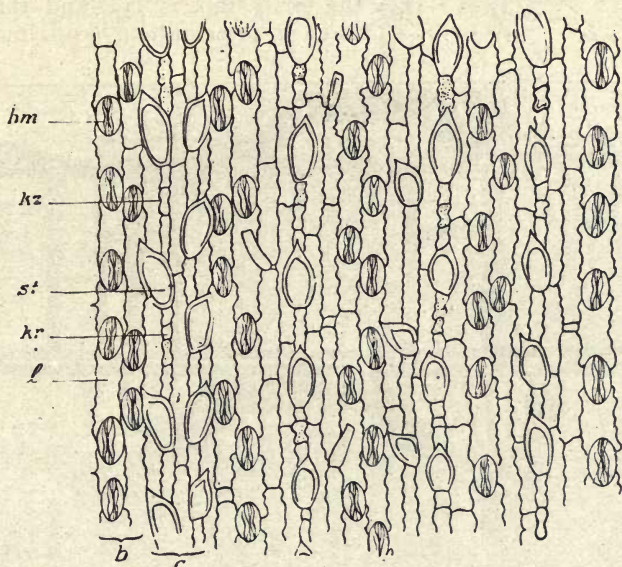 hm
kz
st
kr
l
b
c